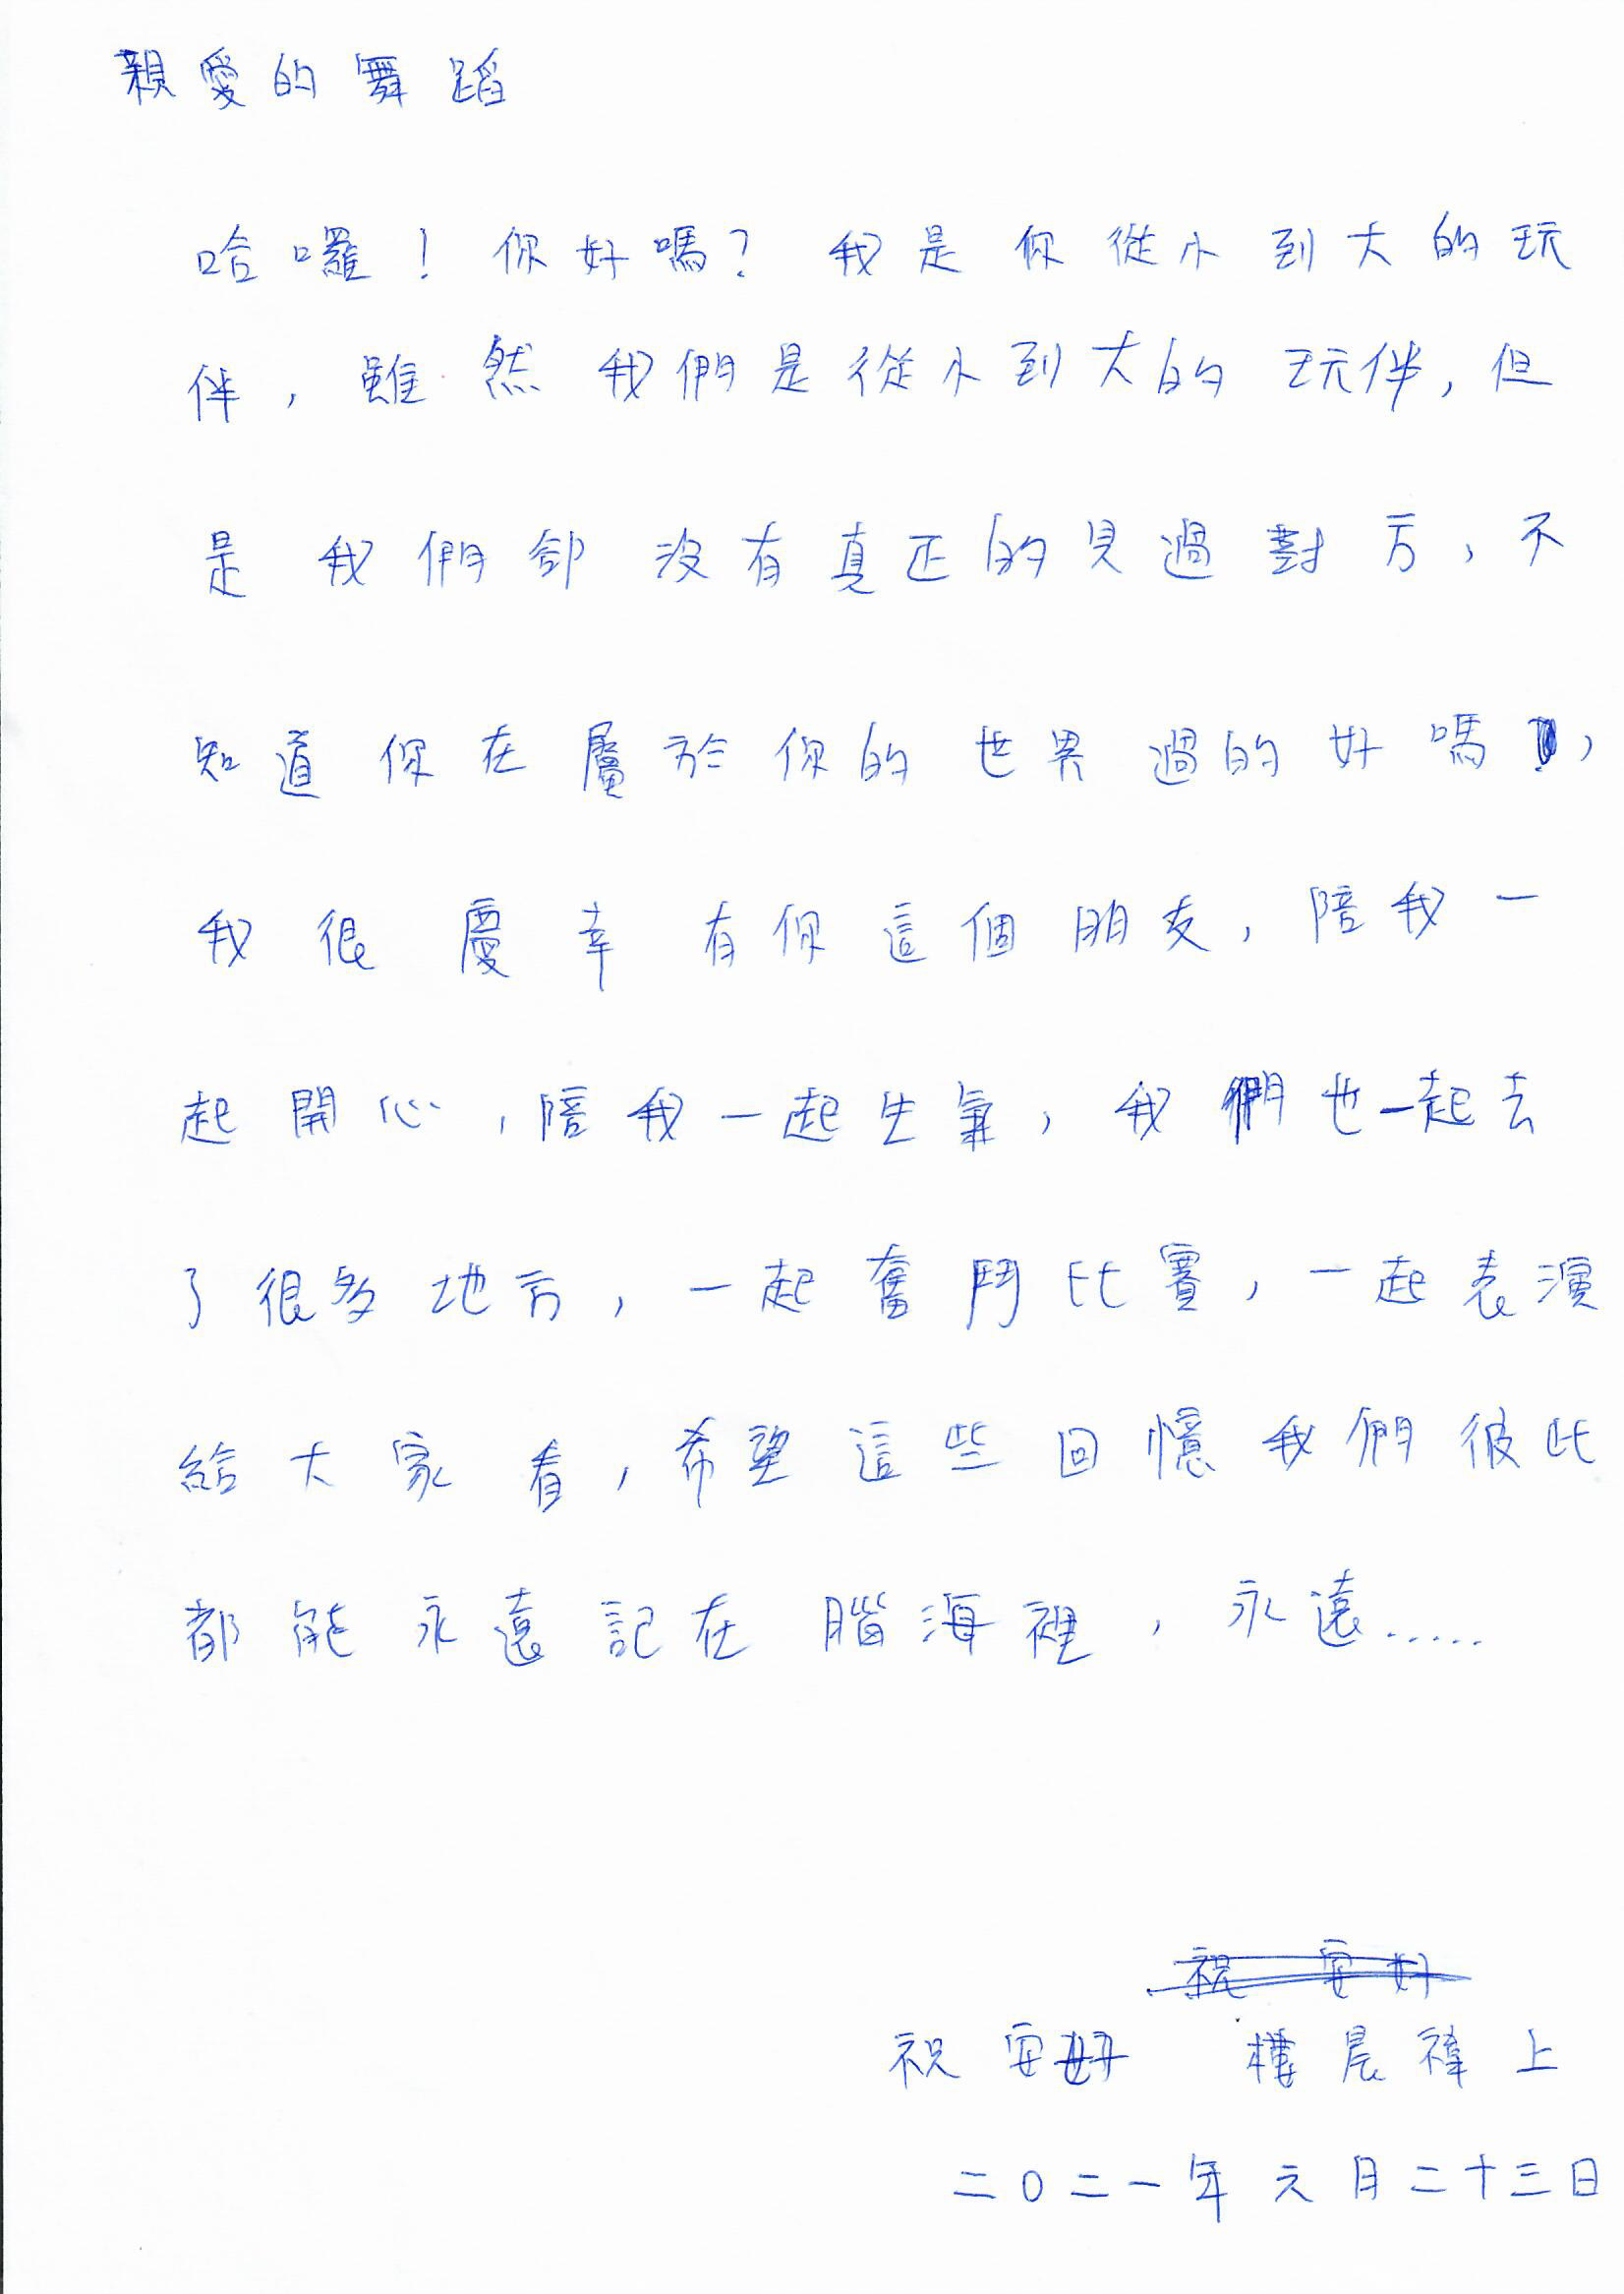 親愛的舞蹈
哈囉！你好嗎？我是你從小到大的玩
伴，雖然我們是從小到大的玩伴，但
是我們卻沒有真正的見過對方，不
知道你在屬於你的世界過的好嗎，
我很慶幸有你這個朋友，陪我一
起開心，陪我一起生氣，我們也一起去
了很多地方，一起奮鬥比賽，一起表演
給大家看，希望這些回憶我們彼此
都能永遠記在腦海裡，永遠.....
祝 安好
祝 安好 樓晨褘上
二〇二一年元月二十三日